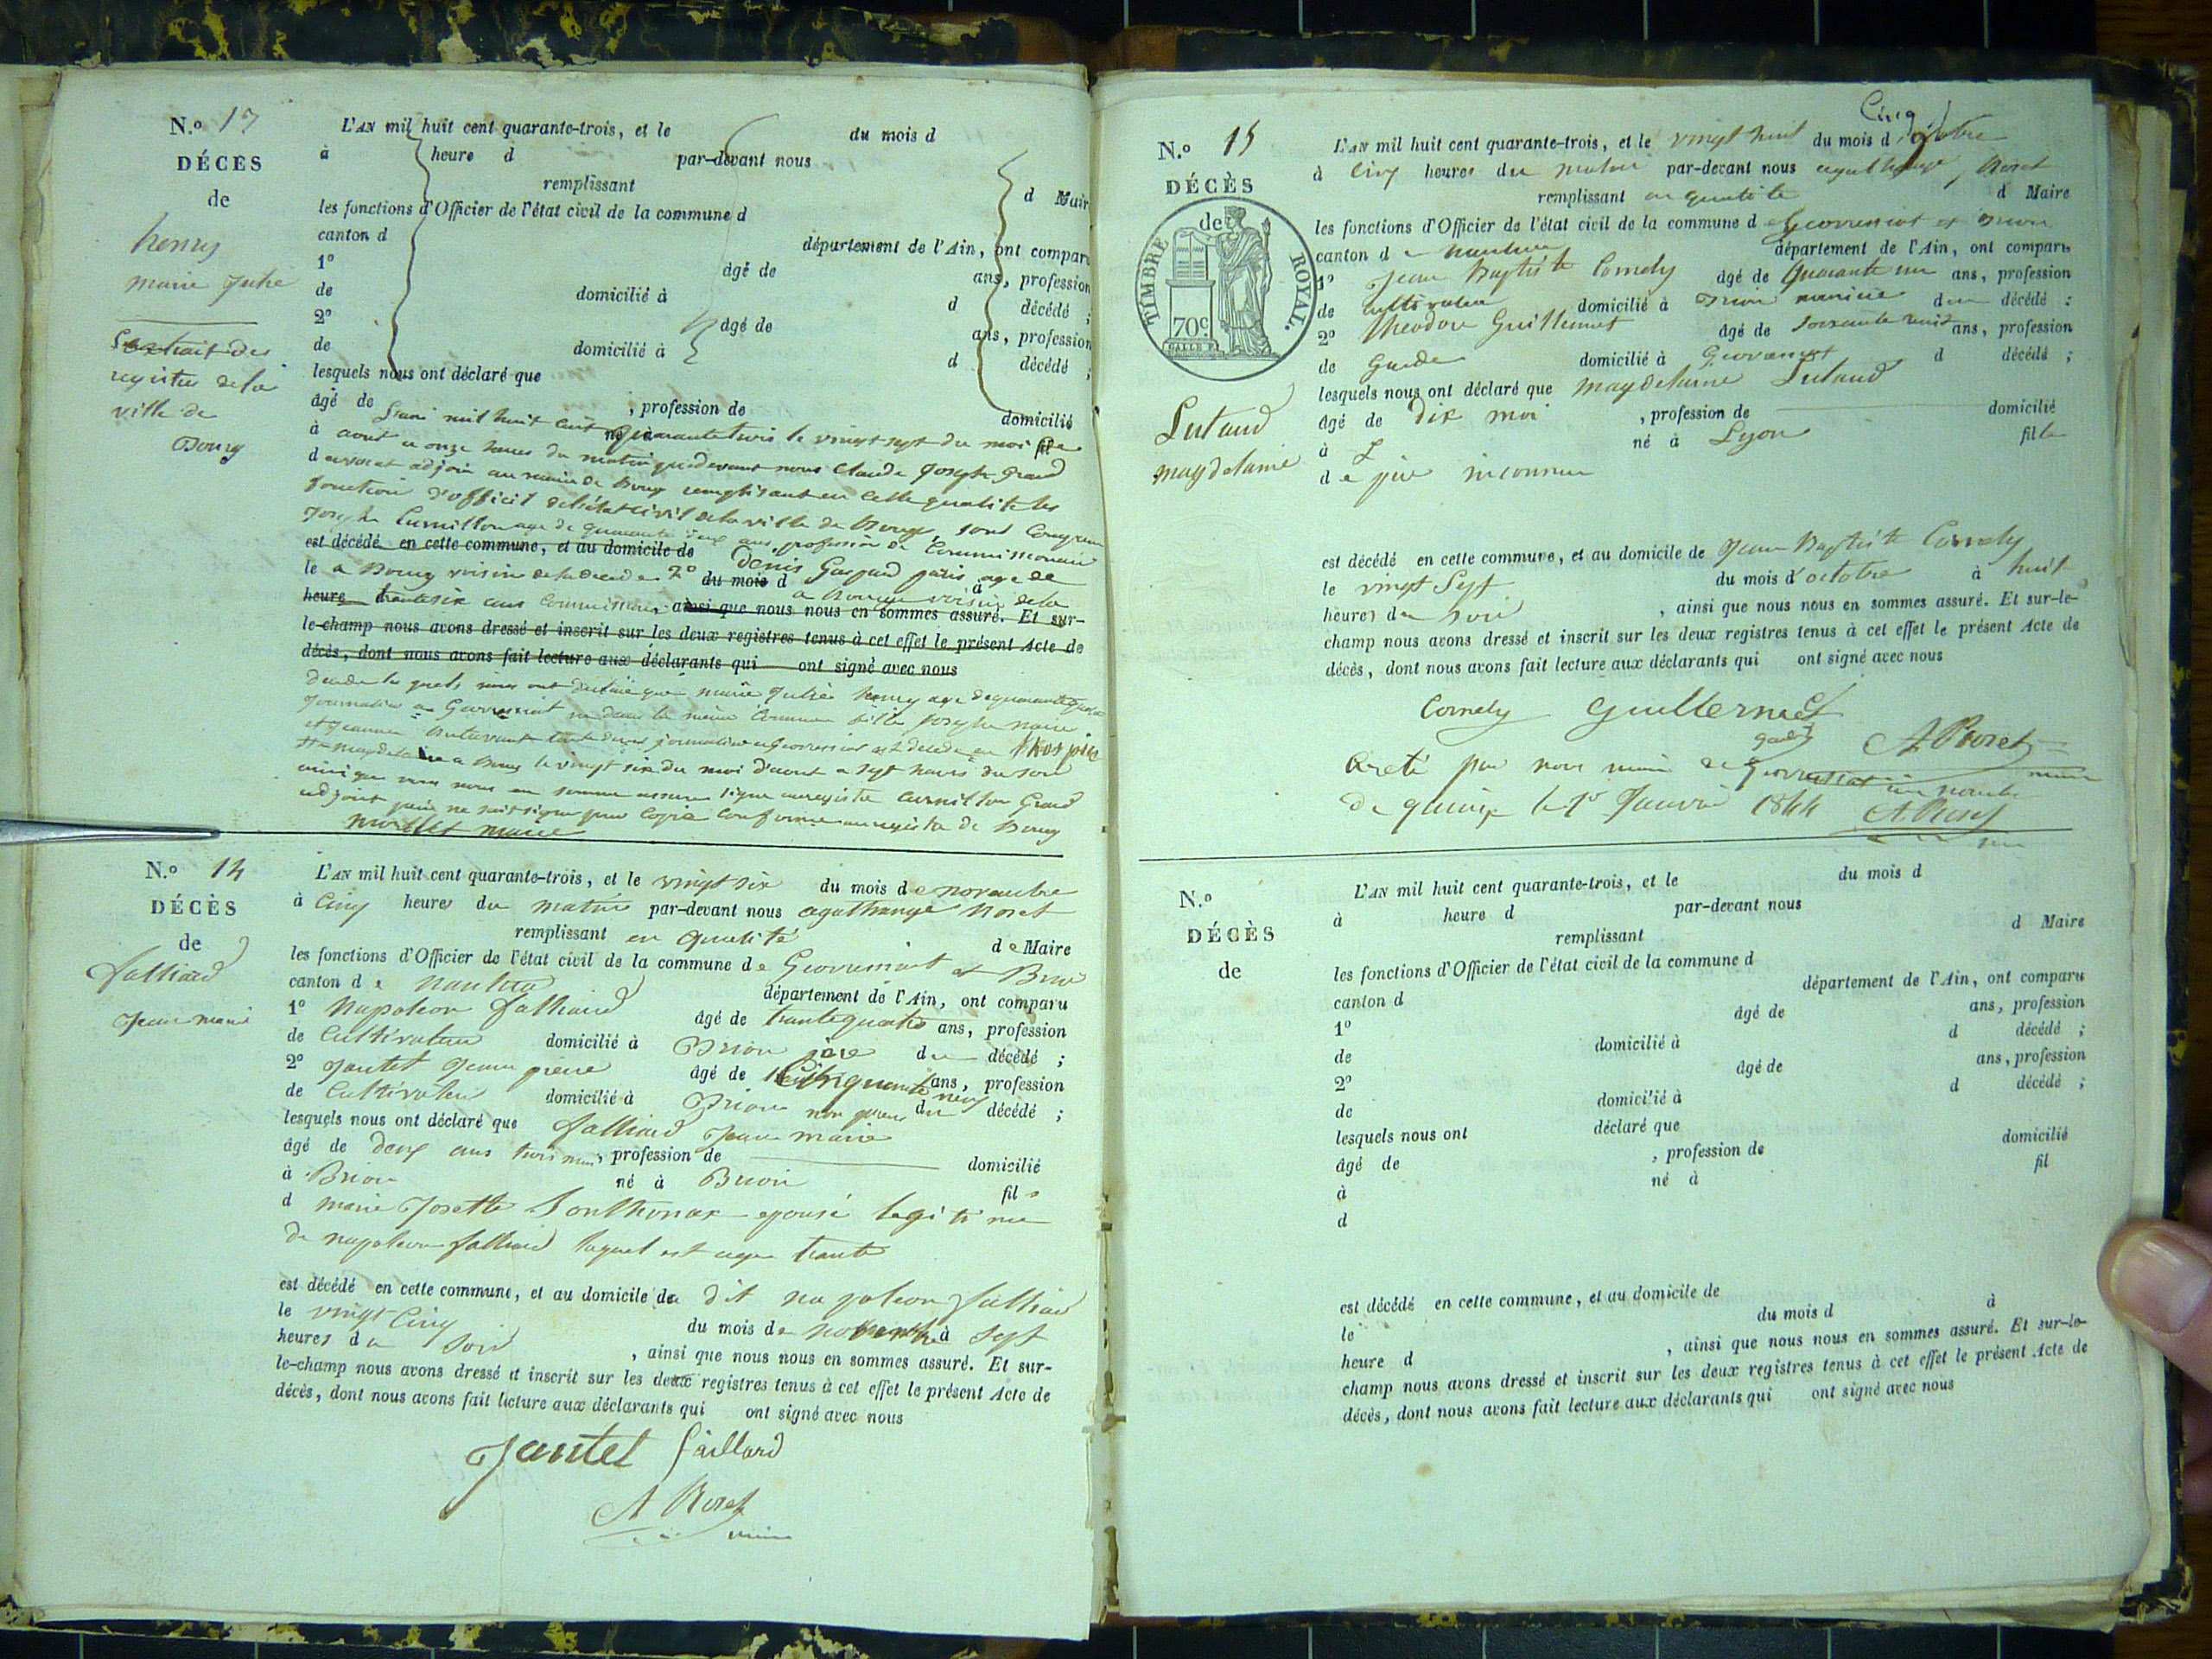 N.º 17
DÉCÈS
de
henry
marie Julie
Extrait des
registres de la
ville de
Bourg
L'AN mil huit cent quarante-trois, et le du mois d
à heure d par-devant nous
remplissant d Maire
les fonctions d'Officier de l'état civil de la commune d
canton d département de l'Ain, ont comparu
1º âgé de ans, profession
de domicilié à d décédé ;
2º âgé de ans, profession
de domicilié à d décédé ;
lesquels nous ont déclaré que
âgé de , profession de domicilié
L'an mil huit cent quarante trois le vingt sept du moi de
à né à fil
aout a onze heures du matin pardevant nous Claude Joseph Grand
d avocat adjoin au maire de Bourg remplisant en cette qualite les
fonction d'officil de l'état civil de la ville de Bourg, sont Comparu
Joseph Curnillon age de quarante deux ans, profession de Commissionaire
est décédé en cette commune, et au domicile de
a Bourg voisin de la decedee 2º Denis Gaspard paris age de
le du mois d à
trante six ans Commissionaire a Bourg voisin de la
heure ainsi que nous nous en sommes assuré. Et sur-
le-champ nous avons dressé et inscrit sur les deux registres tenus à cet effet le présent Acte de
décès, dont nous avons fait lecture aux déclarants qui ont signé avec nous
decedee les quels nous ont declaré que marie Julie henry age de quarante
journaliere a Geovressiat ne dans la même Commune fille Joseph marie
et Jeanne journaliers a Geovressiat est decedé en l'hospice
Ste magdelaine a Bourg le vingt six du moi d'aout a sept heures du soir
ainsi que nous nous en somme assure signe au registre Curnillon Grand
adjoint paris ne sait signe pour Copie Conforme au registre de Bourg
maire
N.º 14
DÉCÈS
de
falliard
Jean marie
L'AN mil huit cent quarante-trois, et le vingt six du mois de novembre
à Cinq heures du matin par-devant nous agathange Roset
remplissant en qualité de Maire
les fonctions d'Officier de l'état civil de la commune de Geovressiat et Brion
canton de nantua département de l'Ain, ont comparu
1º Napoleon falliard âgé de trante quatre ans, profession
de Cultivateur domicilié à Brion père du décédé ;
2º Jantet Jean pierre âgé de Cinquante neuf ans, profession
de Cultivateur domicilié à Brion non parent du décédé ;
lesquels nous ont déclaré que falliard Jean marie
âgé de deux ans trois mois profession de domicilié
à Brion né à Brion fils
d marie Josette Sonthonax epouse legitime
de napoleon falliard laquel est agee trante
est décédé en cette commune, et au domicile du dit napoleon falliard
le vingt Cinq du mois de novembre à sept
heures du soir , ainsi que nous nous en sommes assuré. Et sur-
le-champ nous avons dressé et inscrit sur les deux registres tenus à cet effet le présent Acte de
décès, dont nous avons fait lecture aux déclarants qui ont signé avec nous
Jantet faillard
A Roset
maire
N.º 15
DÉCÈS
de
TIMBRE ROYAL.
70c
Lutaud
magdelaine
Cinq
L'AN mil huit cent quarante-trois, et le vingt huit du mois d'octobre
à Cinq heures du matin par-devant nous agathange Roset
remplissant en qualité d Maire
les fonctions d'Officier de l'état civil de la commune de Geovressiat et Brion
canton de nantua département de l'Ain, ont comparu
1º Jean Baptiste Cornely âgé de quarante un ans, profession
de Cultivateur domicilié à Brion du décédé ;
2º Theodore Guillermet âgé de soixante huit ans, profession
de Garde domicilié à Geovressiat d décédé ;
lesquels nous ont déclaré que magdelaine Lutaud
âgé de dix moi , profession de domicilié
à né à Lyon fille
de père inconnu
est décédé en cette commune, et au domicile de Jean Baptiste Cornely
le vingt Sept du mois d'octobre à huit
heures du soir , ainsi que nous nous en sommes assuré. Et sur-le-
champ nous avons dressé et inscrit sur les deux registres tenus à cet effet le présent Acte de
décès, dont nous avons fait lecture aux déclarants qui ont signé avec nous
Cornely Guillermet
garde A. Roset
maire
Areté par nous maire de Geovressiat au nombre
de quinze le 1er Janvier 1844 A. Roset
N.º
DÉCÈS
de
L'AN mil huit cent quarante-trois, et le du mois d
à heure d par-devant nous
remplissant d Maire
les fonctions d'Officier de l'état civil de la commune d
canton d département de l'Ain, ont comparu
1º âgé de ans, profession
de domicilié à d décédé ;
2º âgé de ans, profession
de domicilié à d décédé ;
lesquels nous ont déclaré que
âgé de , profession de domicilié
à né à fil
d
est décédé en cette commune, et au domicile de
le du mois d à
heure d , ainsi que nous nous en sommes assuré. Et sur-le-
champ nous avons dressé et inscrit sur les deux registres tenus à cet effet le présent Acte de
décès, dont nous avons fait lecture aux déclarants qui ont signé avec nous